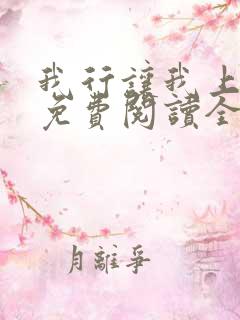 我行讓我上
免費閱讀全
月離爭